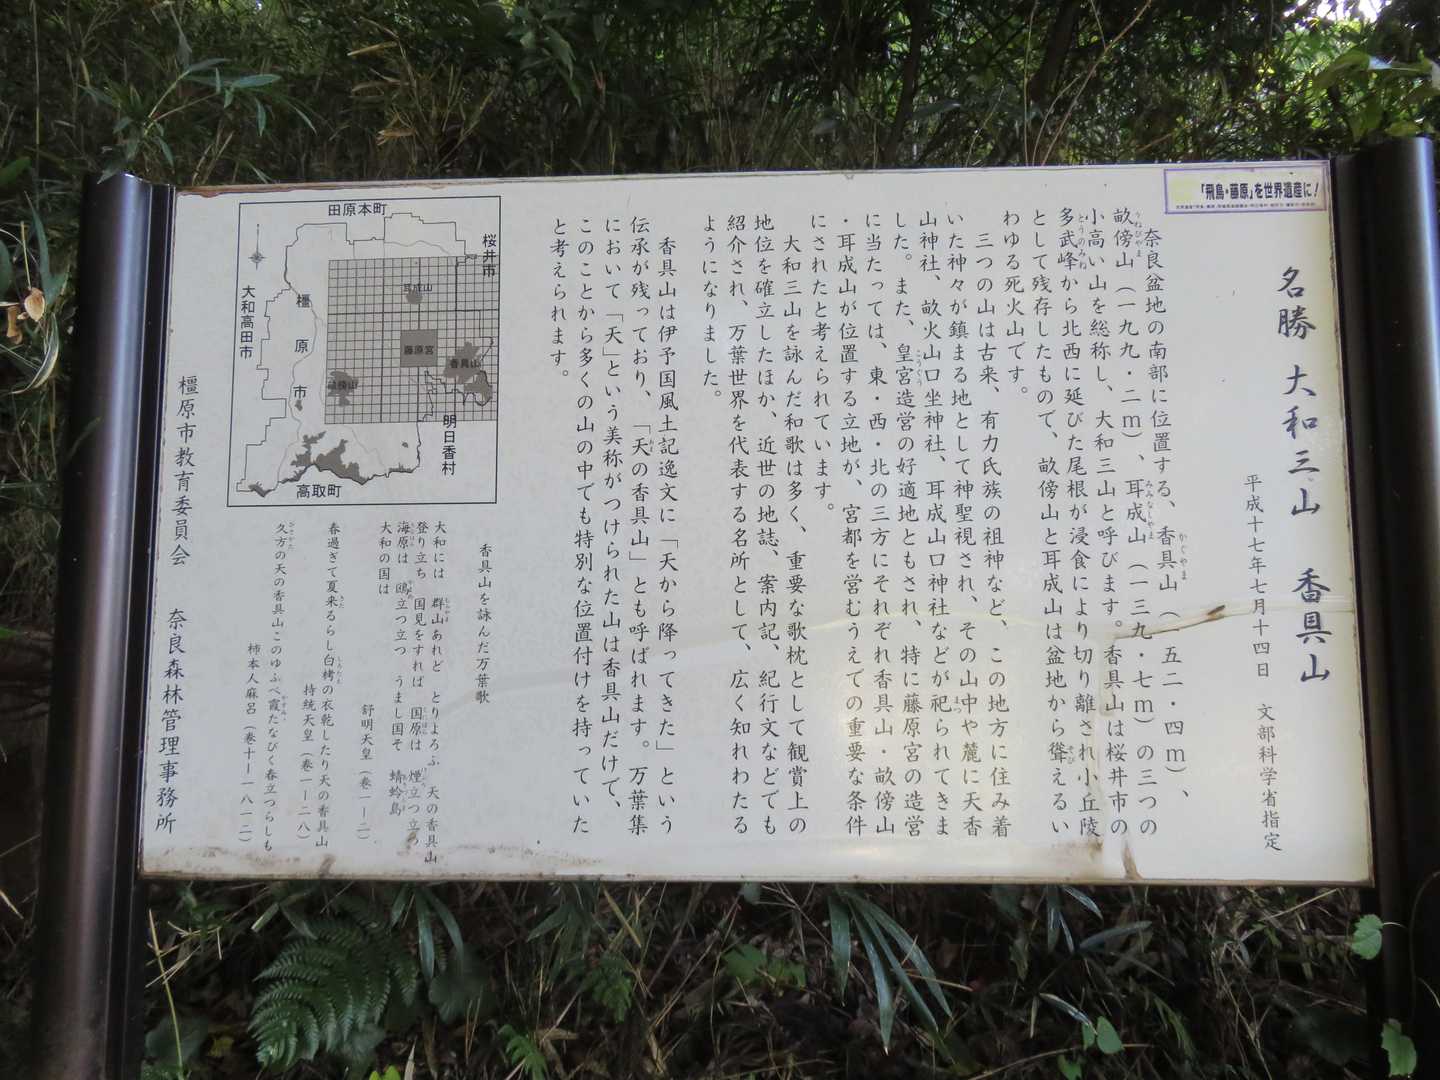 「飛鳥・藤原」を世界遺産に！
名勝 大和三山 香具山
平成十七年七月十四日 文部科学省指定
奈良盆地の南部に位置する、香具山（一五二・四ｍ）、
畝傍山（一九九・二ｍ）、耳成山（一三九・七ｍ）の三つの
小高い山を総称し、大和三山と呼びます。香具山は桜井市の
多武峰から北西に延びた尾根が浸食により切り離され小丘陵
として残存したもので、畝傍山と耳成山は盆地から聳えるい
わゆる死火山です。
三つの山は古来、有力氏族の祖神など、この地方に住み着
いた神々が鎮まる地として神聖視され、その山中や麓に天香
山神社、畝火山口坐神社、耳成山口神社などが祀られてきま
した。また、皇宮造営の好適地ともされ、特に藤原宮の造営
に当たっては、東・西・北の三方にそれぞれ香具山・畝傍山
・耳成山が位置する立地が、宮都を営むうえでの重要な条件
にされたと考えられています。
大和三山を詠んだ和歌は多く、重要な歌枕として観賞上の
地位を確立したほか、近世の地誌、案内記、紀行文などでも
紹介され、万葉世界を代表する名所として、広く知れわたる
ようになりました。
香具山は伊予国風土記逸文に「天から降ってきた」という
伝承が残っており、「天の香具山」とも呼ばれます。万葉集
において「天」という美称がつけられた山は香具山だけで、
このことから多くの山の中でも特別な位置付けを持っていた
と考えられます。
田原本町
桜井市
大和高田市
橿原市
耳成山
藤原宮
香具山
畝傍山
明日香村
高取町
香具山を詠んだ万葉歌
大和には 群山あれど とりよろふ 天の香具山
登り立ち 国見をすれば 国原は 煙立つ立つ
海原は 鴎立つ立つ うまし国そ 蜻蛉島
大和の国は
舒明天皇（巻一―二）
春過ぎて夏来るらし白栲の衣乾したり天の香具山
持統天皇（巻一―二八）
久方の天の香具山このゆふべ霞たなびく春立つらしも
柿本人麻呂（巻十―一八一二）
橿原市教育委員会 奈良森林管理事務所